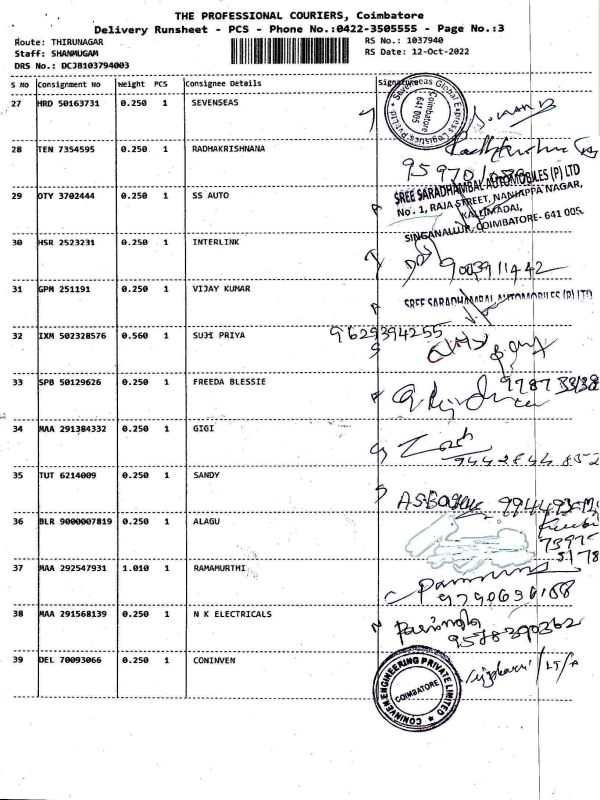 THE PROFESSIONAL COURIERS, Coimbatore
Delivery Runsheet - PCS - Phone No.:0422-3505555 - Page No.:3
Route: THIRUNAGAR RS No.: 1037940
Staff: SHANMUGAM RS Date: 12-Oct-2022
DRS No.: DCJB103794003
S No Consignment No Weight PCS Consignee Details Signature
27 HRD 50163731 0.250 1 SEVENSEAS
Sevenseas Global Express Logistics Pvt Ltd
Coimbatore
641 005
28 TEN 7354595 0.250 1 RADHAKRISHNANA
29 OTY 3702444 0.250 1 SS AUTO
SREE SARADHAMBAL AUTOMOBILES (P) LTD
No. 1, RAJA STREET, NANJAPPA NAGAR,
KALLIMADAI,
SINGANALLUR, COIMBATORE- 641 005.
30 HSR 2523231 0.250 1 INTERLINK
9003911442
31 GPM 251191 0.250 1 VIJAY KUMAR
SREE SARADHAMBAL AUTOMOBILES (P) LTD
32 IXM 502328576 0.560 1 SUJI PRIYA 9629394255
33 SPB 50129626 0.250 1 FREEDA BLESSIE
34 MAA 291384332 0.250 1 GIGI
9442844852
35 TUT 6214009 0.250 1 SANDY
36 BLR 9000007819 0.250 1 ALAGU
37 MAA 292547931 1.010 1 RAMAMURTHI
9790690188
38 MAA 291568139 0.250 1 N K ELECTRICALS
9578390362
39 DEL 70093066 0.250 1 CONINVEN
CONINVEN ENGINEERING PRIVATE LIMITED
COIMBATORE